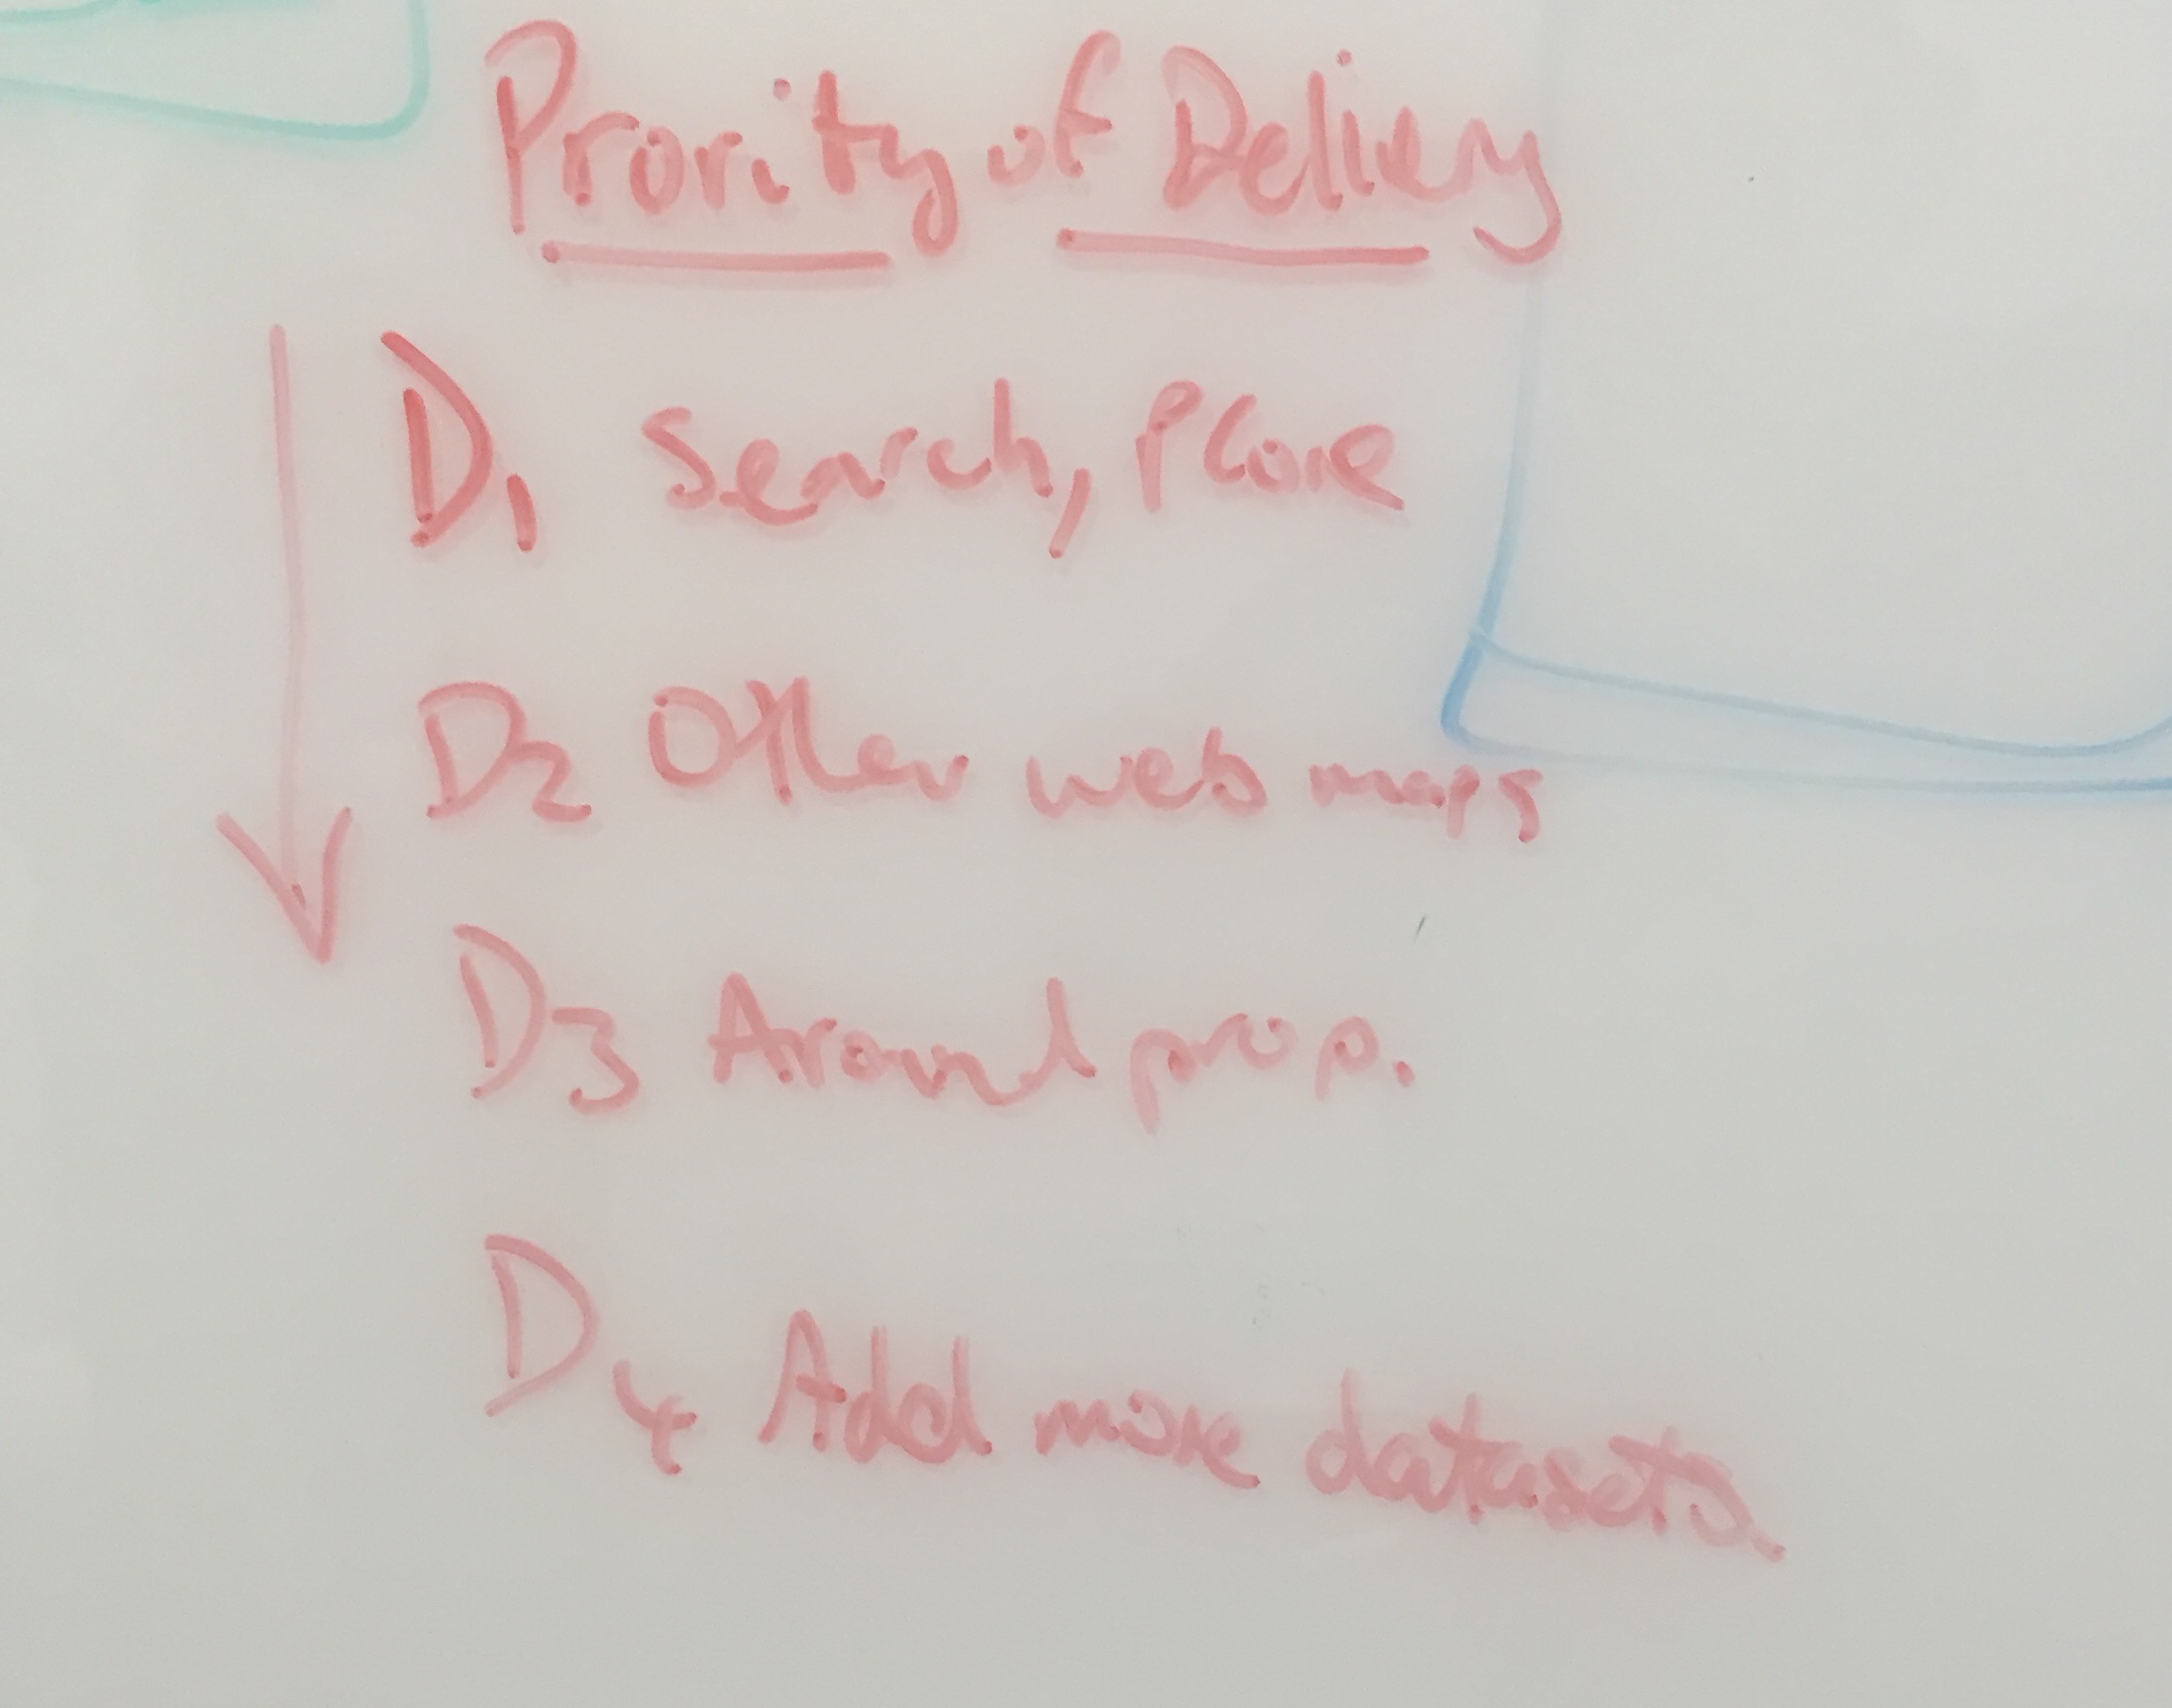 Prority of Delivery
D1 Search, PCore
D2 Other web maps
D3 Around prop.
D4 Add more datasets.